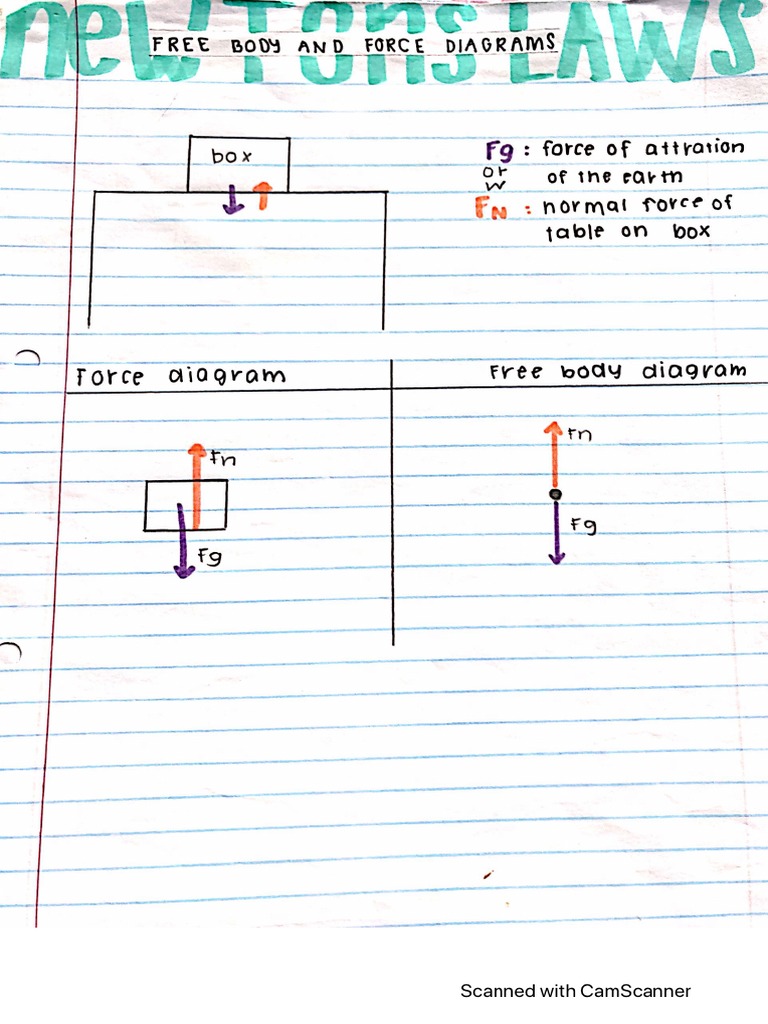 newTons LAWS
FREE BODY AND FORCE DIAGRAMS
box
Fg : force of attration
or
W
of the earth
FN : normal force of
table on box
Force diagram
Free body diagram
Fn
Fg
Fn
Fg
Scanned with CamScanner